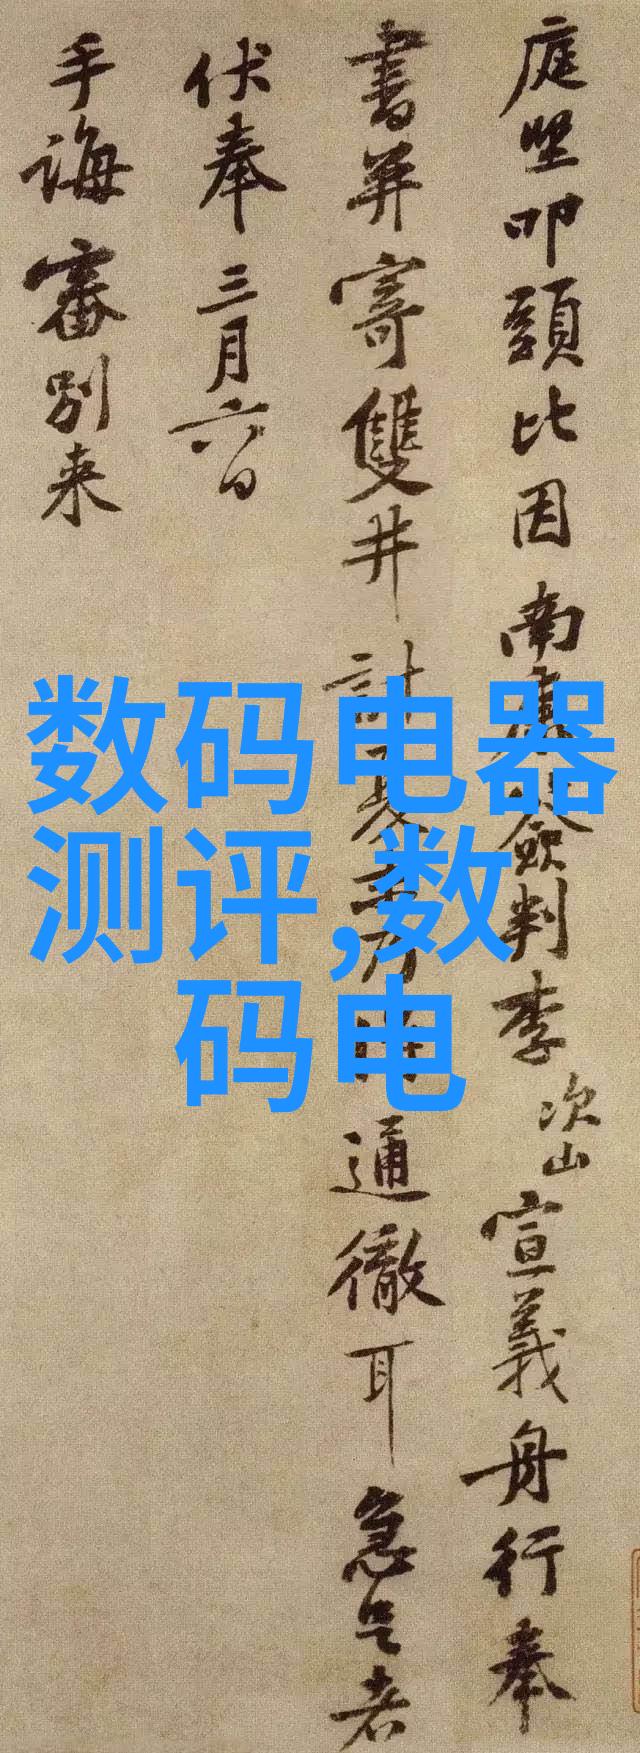 庭堅叩頭比因南康簽判李次山宣義舟行奉
書并寄雙井計夏通徹耳急足者
伏奉三月六日
手誨審別来
数码电器
测评,数
码电